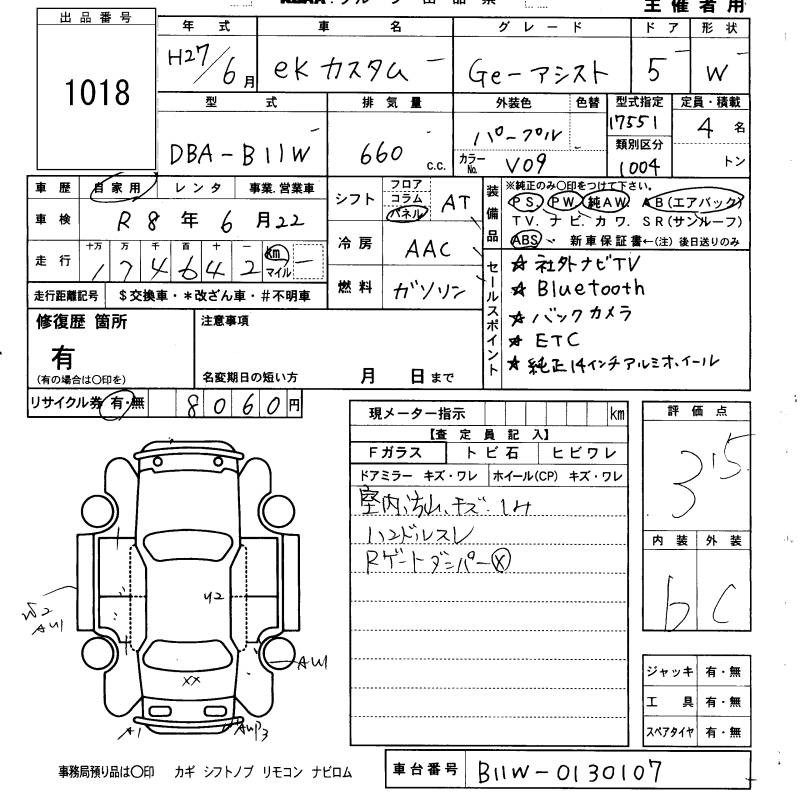 主催者用
出品番号 年式 車名 グレード ドア 形状
1018 H27/6月 eKカスタム Ge-アシスト 5 W
型式 排気量 外装色 色替 型式指定 定員・積載
DBA-B11W 660 c.c. パープル 17551 4名
カラーNo. V09 類別区分 1004 トン
車歴 自家用 レンタ 事業.営業車
車検 R8年6月22
走行 十万 万 千 百 十 km マイル
174642
走行距離記号 $交換車・*改ざん車・#不明車
シフト フロア コラム パネル AT
冷房 AAC
燃料 ガソリン
装備品 ※純正のみ○印をつけて下さい。
PS. PW. 純AW. AB(エアバック)
TV. ナビ. カワ. SR(サンルーフ)
ABS 新車保証書←(注)後日送りのみ
セールスポイント
★ 社外ナビTV
★ Bluetooth
★ バックカメラ
★ ETC
★ 純正14インチアルミホイール
修復歴 箇所 注意事項
有
(有の場合は○印を) 名変期日の短い方 月 日まで
リサイクル券 有・無 8060円
現メーター指示 km
【査定員記入】
Fガラス トビ石 ヒビワレ
ドアミラー キズ・ワレ ホイール(CP) キズ・ワレ
室内汚れ、キズ、シミ
ハンドルスレ
Rゲートダンパー ×
評価点
3.5
内装 外装
b C
ジャッキ 有・無
工具 有・無
スペアタイヤ 有・無
U2
W2
AU1
AW1
XX
A1
事務局預り品は○印 カギ シフトノブ リモコン ナビロム
車台番号 B11W-0130107